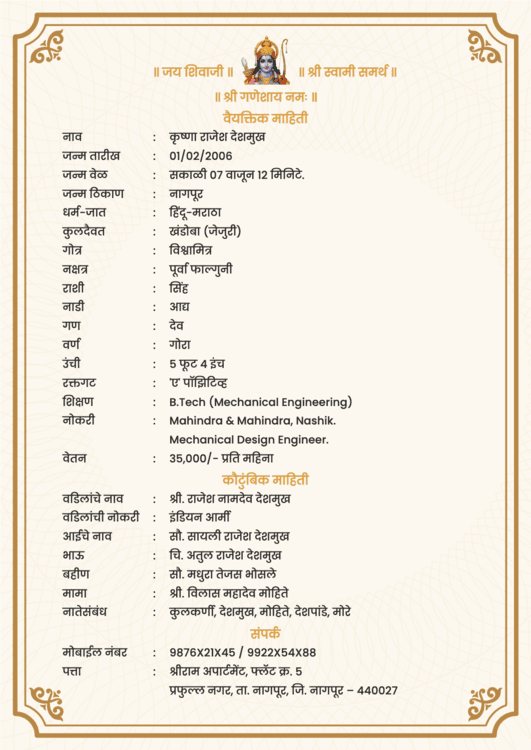 ॥ जय शिवाजी ॥ ॥ श्री स्वामी समर्थ ॥
॥ श्री गणेशाय नमः ॥
वैयक्तिक माहिती
नाव : कृष्णा राजेश देशमुख
जन्म तारीख : 01/02/2006
जन्म वेळ : सकाळी 07 वाजून 12 मिनिटे.
जन्म ठिकाण : नागपूर
धर्म-जात : हिंदू-मराठा
कुलदैवत : खंडोबा (जेजुरी)
गोत्र : विश्वामित्र
नक्षत्र : पूर्वा फाल्गुनी
राशी : सिंह
नाडी : आद्य
गण : देव
वर्ण : गोरा
उंची : 5 फूट 4 इंच
रक्तगट : 'ए' पॉझिटिव्ह
शिक्षण : B.Tech (Mechanical Engineering)
नोकरी : Mahindra & Mahindra, Nashik.
Mechanical Design Engineer.
वेतन : 35,000/- प्रति महिना
कौटुंबिक माहिती
वडिलांचे नाव : श्री. राजेश नामदेव देशमुख
वडिलांची नोकरी : इंडियन आर्मी
आईचे नाव : सौ. सायली राजेश देशमुख
भाऊ : चि. अतुल राजेश देशमुख
बहीण : सौ. मधुरा तेजस भोसले
मामा : श्री. विलास महादेव मोहिते
नातेसंबंध : कुलकर्णी, देशमुख, मोहिते, देशपांडे, मोरे
संपर्क
मोबाईल नंबर : 9876X21X45 / 9922X54X88
पत्ता : श्रीराम अपार्टमेंट, फ्लॅट क्र. 5
प्रफुल्ल नगर, ता. नागपूर, जि. नागपूर – 440027